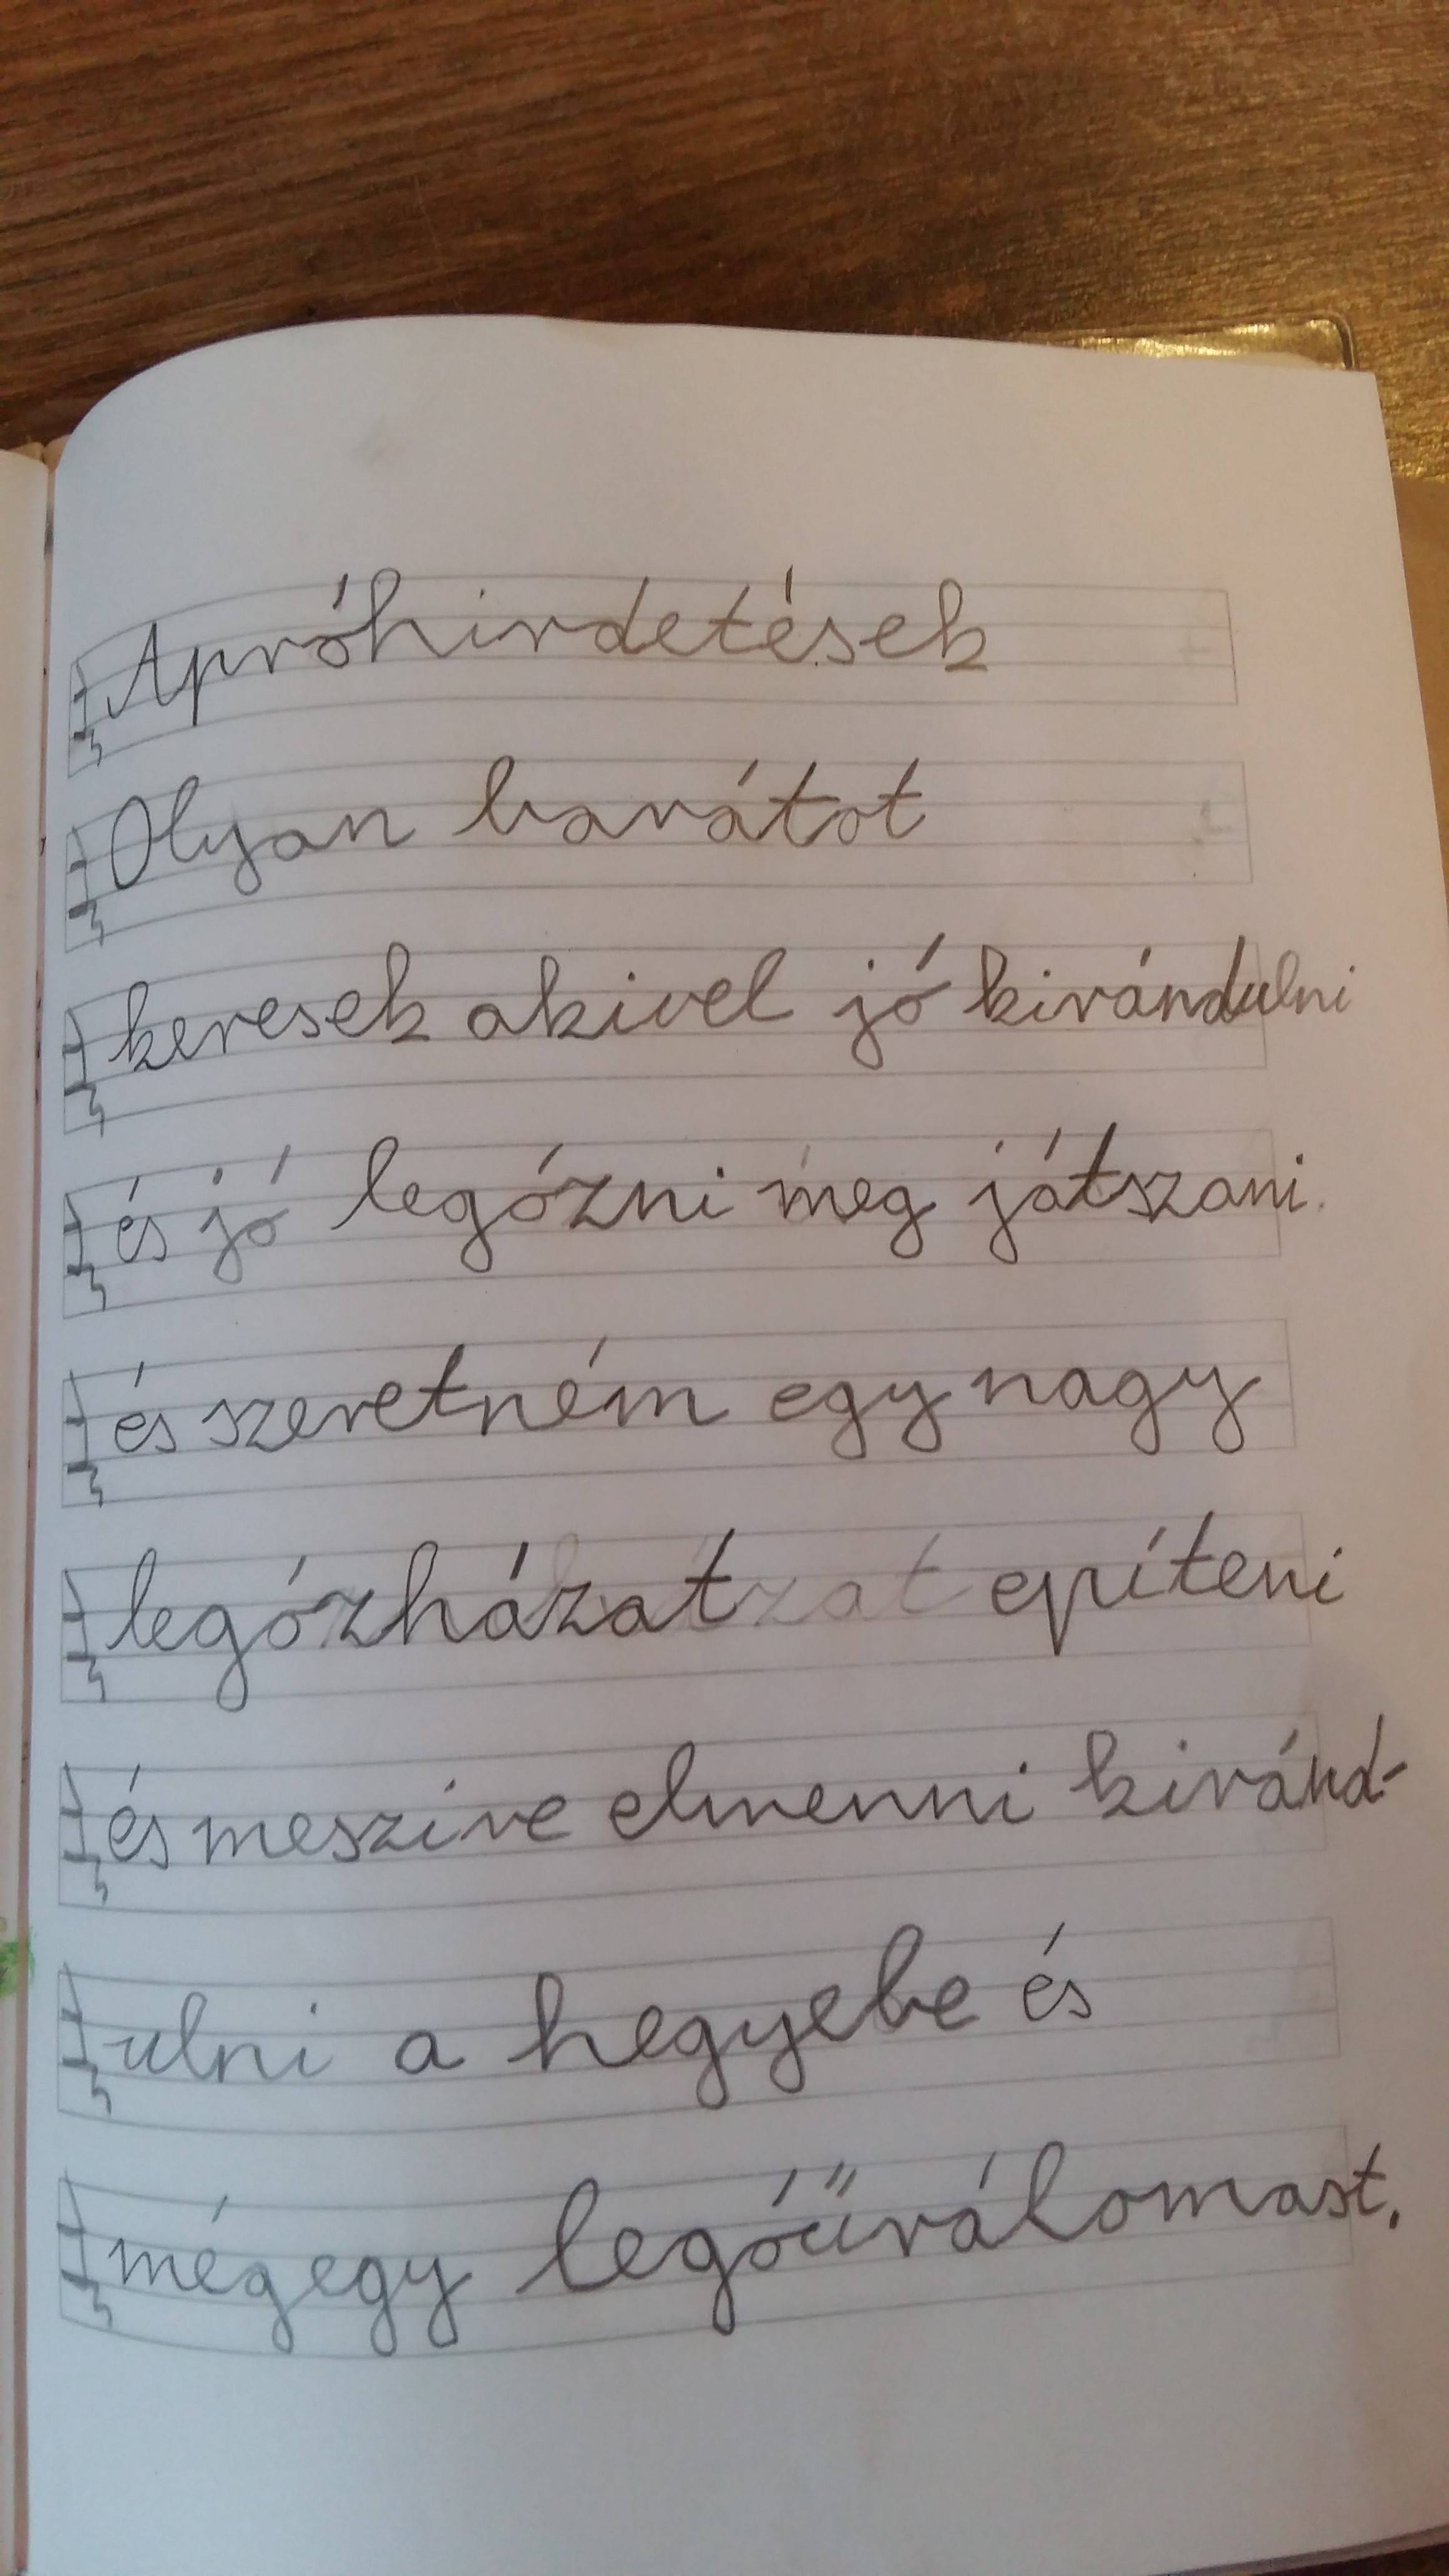 Apróhirdetések
Olyan barátot
keresek akivel jó kirándulni
és jó legózni meg játszani.
és szeretném egy nagy
legózházat epíteni
és meszire elmenni kiránd-
ulni a hegyebe és
mégegy legóűrálomast.